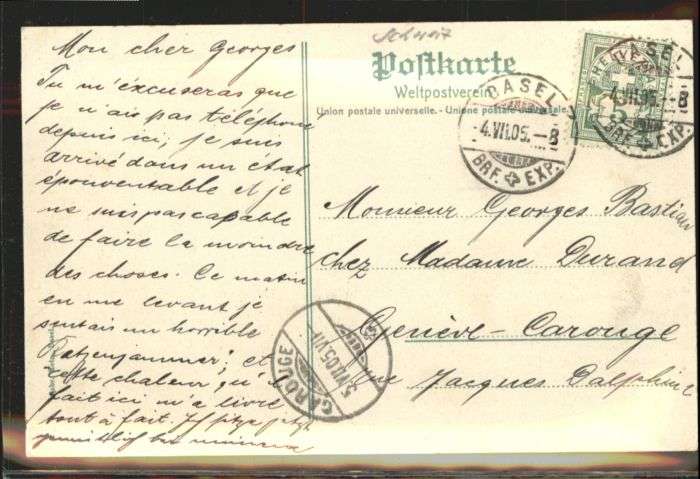 Mon cher Georges
Tu m'excuseras que
je n'ais pas téléphone
depuis ici, je suis
arrivé dans un état
épouventable et je
ne suis pas capable
de faire la moindre
des choses. Ce matin
en me levant je
sentais un horrible
Katzenjammer; et
cette chaleur qu'il
fait ici m'a livré
tout à fait. Ich sitze jetzt
Schweiz
Postkarte
Weltpostverein
Union postale universelle. - Unione postale universale.
BASEL
4.VII.05.-8
BRF. EXP.
HELVETIA
BASEL
4.VII.05.-8
BRF. EXP.
Monsieur Georges Bastian
chez Madame Durand
Genève-Carouge
rue Jacques Dalphin
CAROUGE
5.VII.05.VII